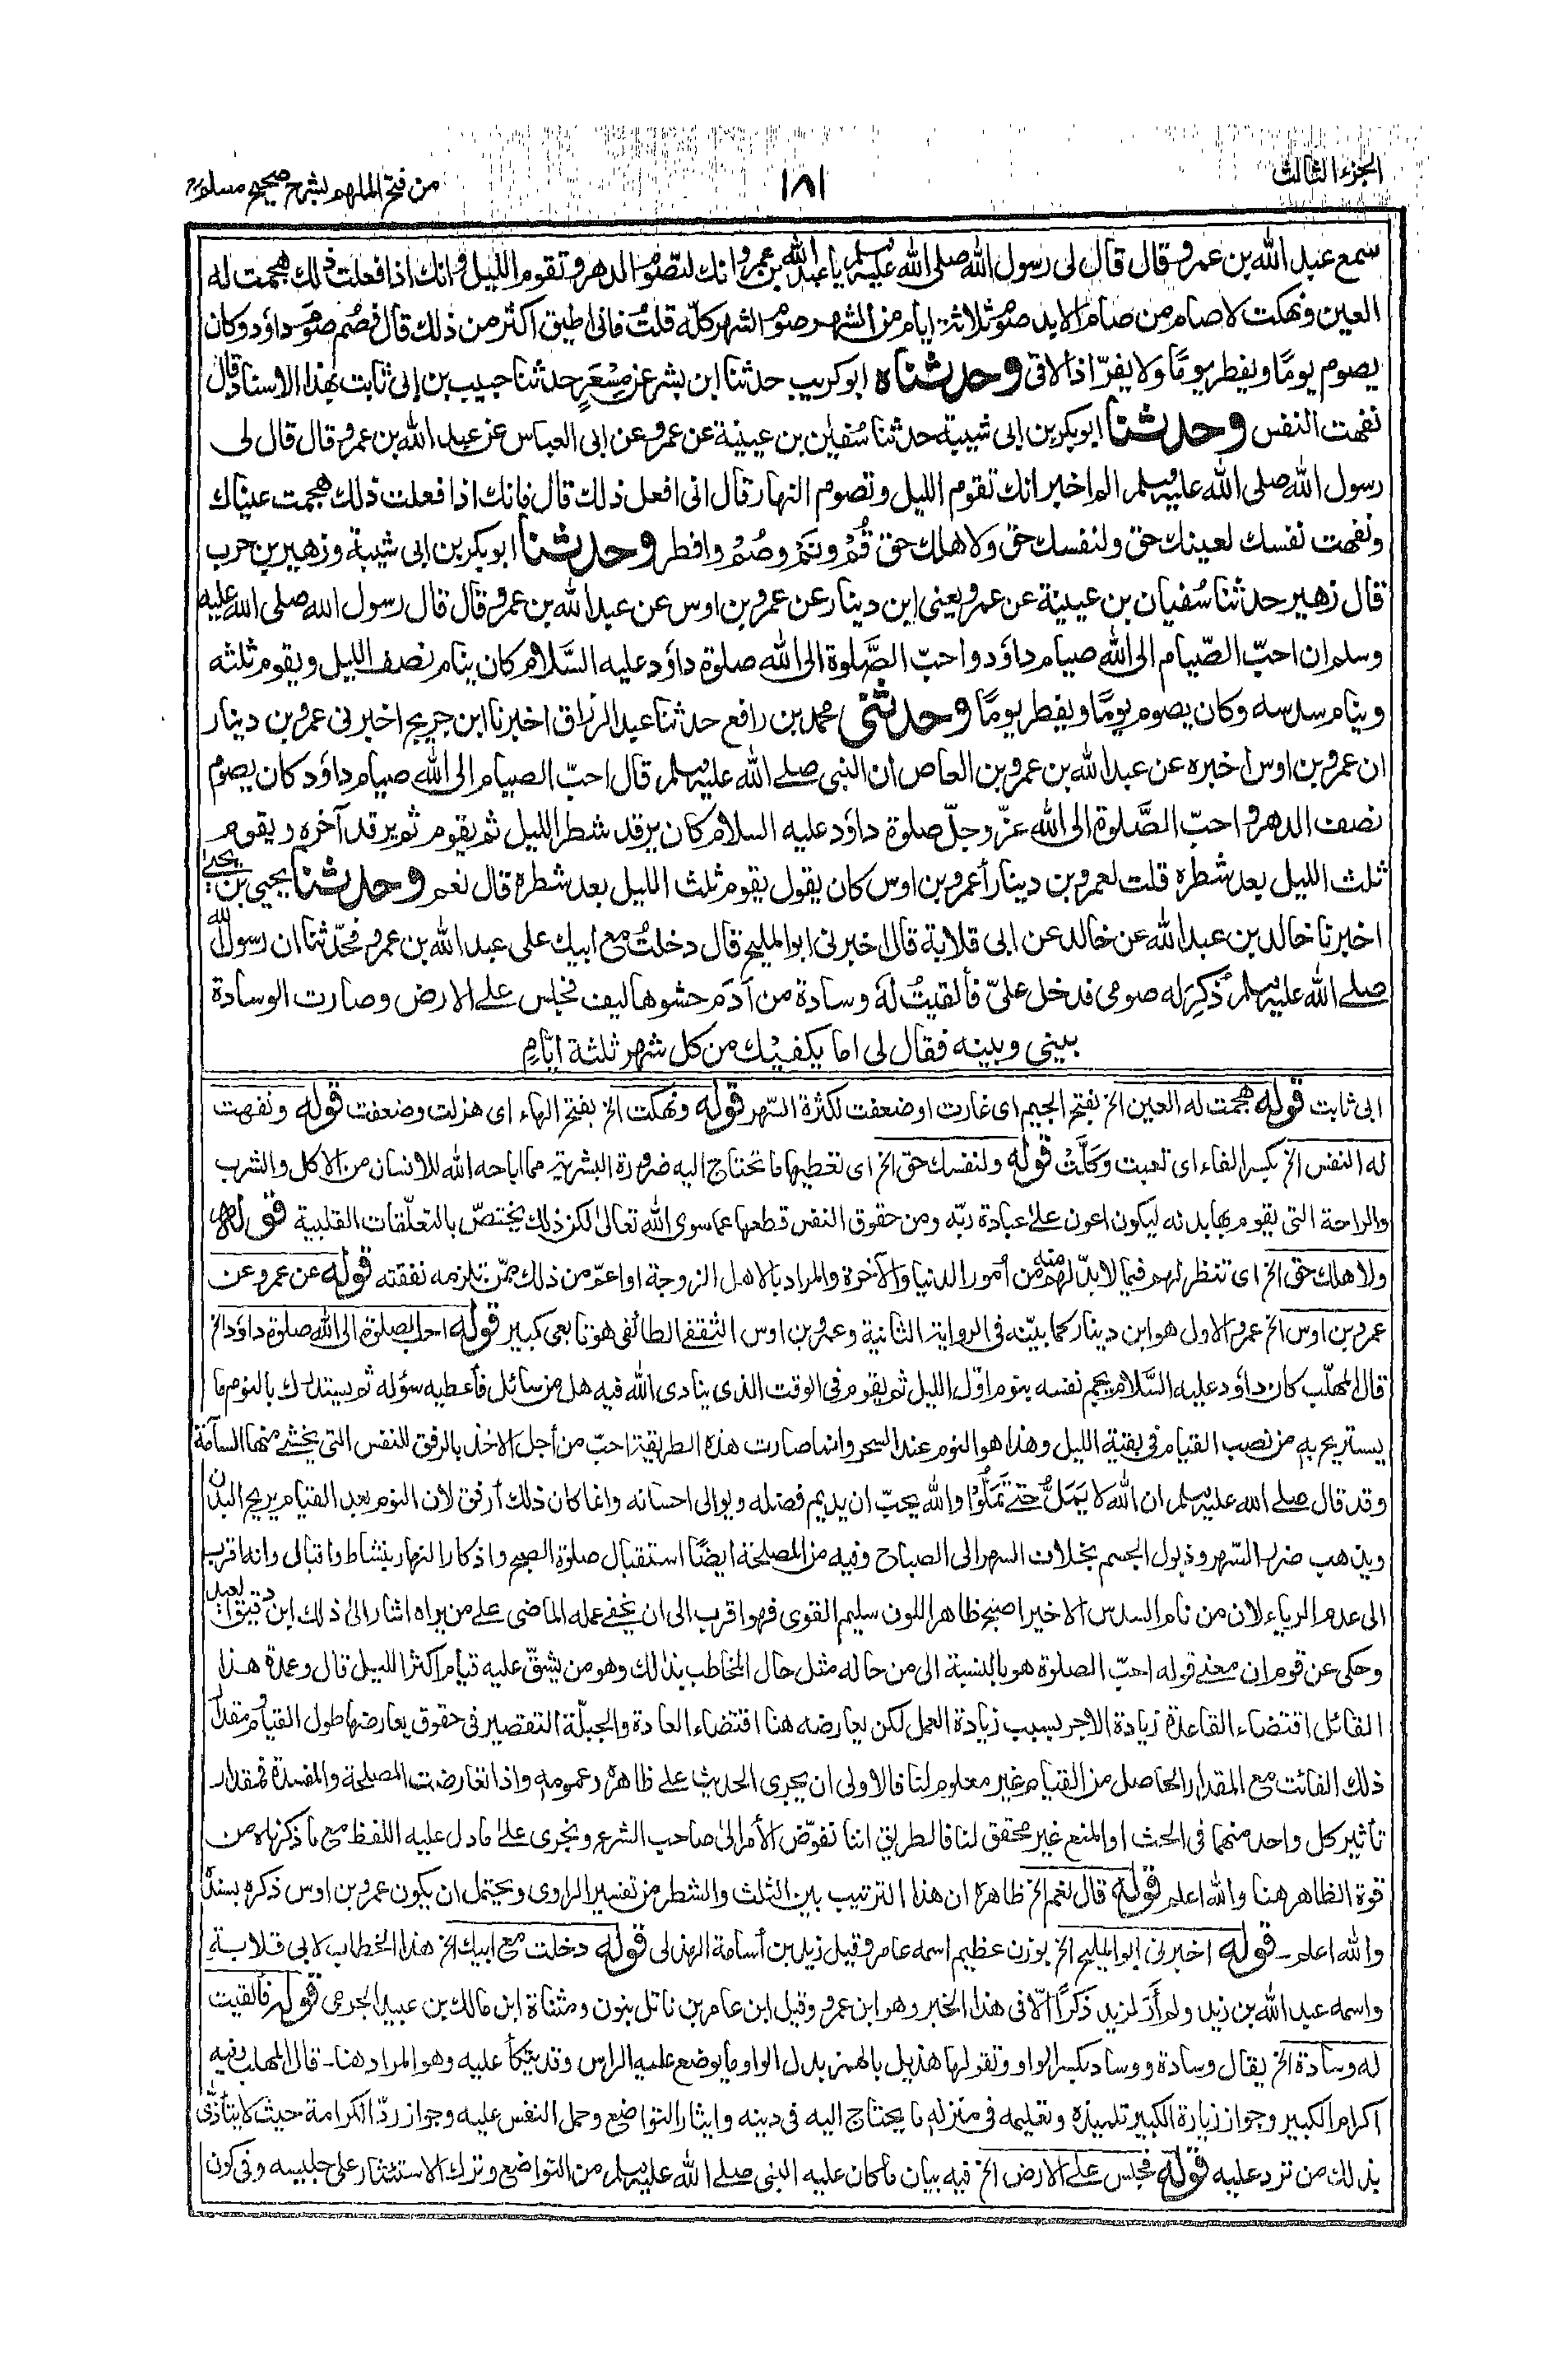 الجزء الثالث
١٨١
من فتح الملهم بشرح صحيح مسلم
سمع عبد الله بن عمرو قال قال لى رسول الله صلى الله عليه وسلم يا عبد الله بن عمرو انك لتصوم الدهر وتقوم الليل وانك اذا فعلت ذلك هجمت له
العين ونهكت لاصام من صام الابد صوم ثلاثة ايام من الشهر صوم الشهر كلّه قلتُ فانى اطيق اكثر من ذلك قال فصُم صوم داوَد وكان
يصوم يومًا ويفطر يومًا ولا يفرّ اذا لاقى وحدثناه ابو كريب حدثنا ابن بشر عن مِسْعَرٍ حدثنا حبيب بن ابى ثابت بهذا الاسناد قال
نفهت النفس وحدثنا ابو بكر بن ابى شيبة حدثنا سُفيٰن بن عيينة عن عمرو عن ابى العباس عن عبد الله بن عمرو قال قال لى
رسول الله صلى الله عليه وسلم الم اخبر انك تقوم الليل وتصوم النهار قال انى افعل ذلك قال فانك اذا فعلت ذلك هجمت عيناك
ونفهت نفسك لعينك حق ولنفسك حق ولاهلك حق قُمْ ونَمْ وصُمْ وافطر وحدثنا ابو بكر بن ابى شيبة وزهير بن حرب
قال زهير حدثنا سُفيان بن عيينة عن عمرو يعنى ابن دينار عن عمرو بن اوس عن عبد الله بن عمرو قال قال رسول الله صلى الله عليه
وسلم ان احبّ الصّيام الى الله صيام داوَد واحبّ الصَّلوة الى الله صلوة داوَد عليه السَّلام كان ينام نصف الليل ويقوم ثلثه
وينام سدسه وكان يصوم يومًا ويفطر يومًا وحدثنى محمد بن رافع حدثنا عبد الرزاق اخبرنا ابن جريج اخبرنى عمرو بن دينار
ان عمرو بن اوس اخبره عن عبد الله بن عمرو بن العاص ان النبى صلى الله عليه وسلم قال احبّ الصيام الى الله صيام داوَد كان يصوم
نصف الدهر واحبّ الصَّلوة الى الله عزّ وجلّ صلوة داوَد عليه السلام كان يرقد شطر الليل ثم يقوم ثم يرقد آخره ويقوم
ثلث الليل بعد شطره قلت لعمرو بن دينار أعمرو بن اوس كان يقول يقوم ثلث الليل بعد شطره قال نعم وحدثنا يحيى بن يحيىٰ
اخبرنا خالد بن عبد الله عن خالد عن ابى قلابة قال اخبرنى ابو المليح قال دخلتُ مع ابيك على عبد الله بن عمرو فحدّثنا ان رسول الله
صلى الله عليه وسلم ذُكِرَ له صومى فدخل علىّ فألقيتُ له وسادة من اَدَم حشوها ليف فجلس على الارض وصارت الوسادة
بينى وبينه فقال لى اما يكفيك من كل شهر ثلثة ايّامٍ
ابى ثابت قوله هجمت له العين الخ بفتح الجيم اى غارت او ضعفت لكثرة السّهر قوله ونهكت الخ بفتح الهاء اى هزلت وضعفت قوله ونفهت
له النفس الخ بكسر الفاء اى تعبت وكلَّتْ قوله ولنفسك حق الخ اى تعطيها ما تحتاج اليه ضرورة البشرية مما اباحه الله للانسان من الاكل والشرب
والراحة التى يقوم بها بدنه ليكون اعون علىٰ عبادة ربّه ومن حقوق النفس قطعها عما سوى الله تعالىٰ لكن ذلك يختصّ بالتعلّقات القلبية قوله
ولاهلك حق الخ اى تنظر لهم فيما لابدّ لهم منه من أمور الدنيا والآخرة والمراد بالاهل الزوجة او اعمّ من ذلك ممّن تلزمه نفقته قوله عن عمرو عن
عمرو بن اوس الخ عمرو الاول هو ابن دينار كما بيّنه فى الرواية الثانية وعمرو بن اوس الثقفى الطائفى هو تابعى كبير قوله احب الصلوة الى الله صلوة داوَد الخ
قال المهلّب كان داوَد عليه السَّلام يجم نفسه بنوم اوّل الليل ثم يقوم فى الوقت الذى ينادى الله فيه هل من سائل فأعطيه سؤله ثم يستدرك بالنوم ما
يستريح به من نصب القيام فى بقية الليل وهذا هو النوم عند السحر وانما صارت هذه الطريقة احبّ من أجل الاخذ بالرفق للنفس التى يخشى منها السآمة
وقد قال صلى الله عليه وسلم ان الله لا يَمَلُّ حتّى تَمَلُّوْا والله يحبّ ان يديم فضله ويوالى احسانه وانما كان ذلك أرفق لان النوم بعد القيام يريح البدن
ويذهب ضرر السّهر وذبول الجسم بخلاف السهر الى الصباح وفيه من المصلحة ايضًا استقبال صلوة الصبح واذكار النهار بنشاط واقبال وانه اقرب
الى عدم الرياء لان من نام السدس الاخير اصبح ظاهر اللون سليم القوى فهو اقرب الى ان يخفى عمله الماضى على من يراه اشار الىٰ ذلك ابن دقيق العيد
وحكى عن قوم ان معنى قوله احبّ الصلوة هو بالنسبة الى من حاله مثل حال المخاطب بذلك وهو من يشقّ عليه قيام اكثر الليل قال وعمدة هذا
القائل اقتضاء القاعدة زيادة الاجر بسبب زيادة العمل لكن يعارضه هنا اقتضاء العادة والجبلّة التقصير فى حقوق يعارضها طول القيام ومقدار
ذلك الفائت مع المقدار الحاصل من القيام غير معلوم لنا فالاولى ان يجرى الحديث على ظاهره وعمومه واذا تعارضت المصلحة والمفسدة فمقدار
تأثير كل واحد منهما فى الحث او المنع غير محقق لنا فالطريق اننا نفوّض الأمر الىٰ صاحب الشرع ونجرى علىٰ ما دل عليه اللفظ مع ما ذكرناه من
قوة الظاهر هنا والله اعلم قوله قال نعم الخ ظاهره ان هذا الترتيب بين الثلث والشطر من تفسير الراوى ويحتمل ان يكون عمرو بن اوس ذكره بسنده
والله اعلم۔ قوله اخبرنى ابو المليح الخ بوزن عظيم اسمه عامر وقيل زيد بن أسامة الهذلى قوله دخلت مع ابيك الخ هذا الخطاب لابى قلابة
واسمه عبد الله بن زيد ولم أَرَ لزيد ذكرًا الّا فى هذا الخبر وهو ابن عمرو وقيل ابن عامر بن ناتل بنون ومثناة ابن مالك بن عبيد الجرمى قوله فألقيت
له وسادة الخ يقال وسادة ووساد بكسر الواو وتقولها هذيل بالهمز بدل الواو ما يوضع عليه الراس وقد يتكأ عليه وهو المراد هنا۔ قال المهلب وفيه
اكرام الكبير وجواز زيارة الكبير تلميذه وتعليمه فى منزله ما يحتاج اليه فى دينه وايثار التواضع وحمل النفس عليه وجواز ردّ الكرامة حيث لا يتأذّى
بذلك من ترد عليه قوله فجلس على الارض الخ فيه بيان ما كان عليه النبى صلى الله عليه وسلم من التواضع وترك الاستئثار على جليسه وفى كون